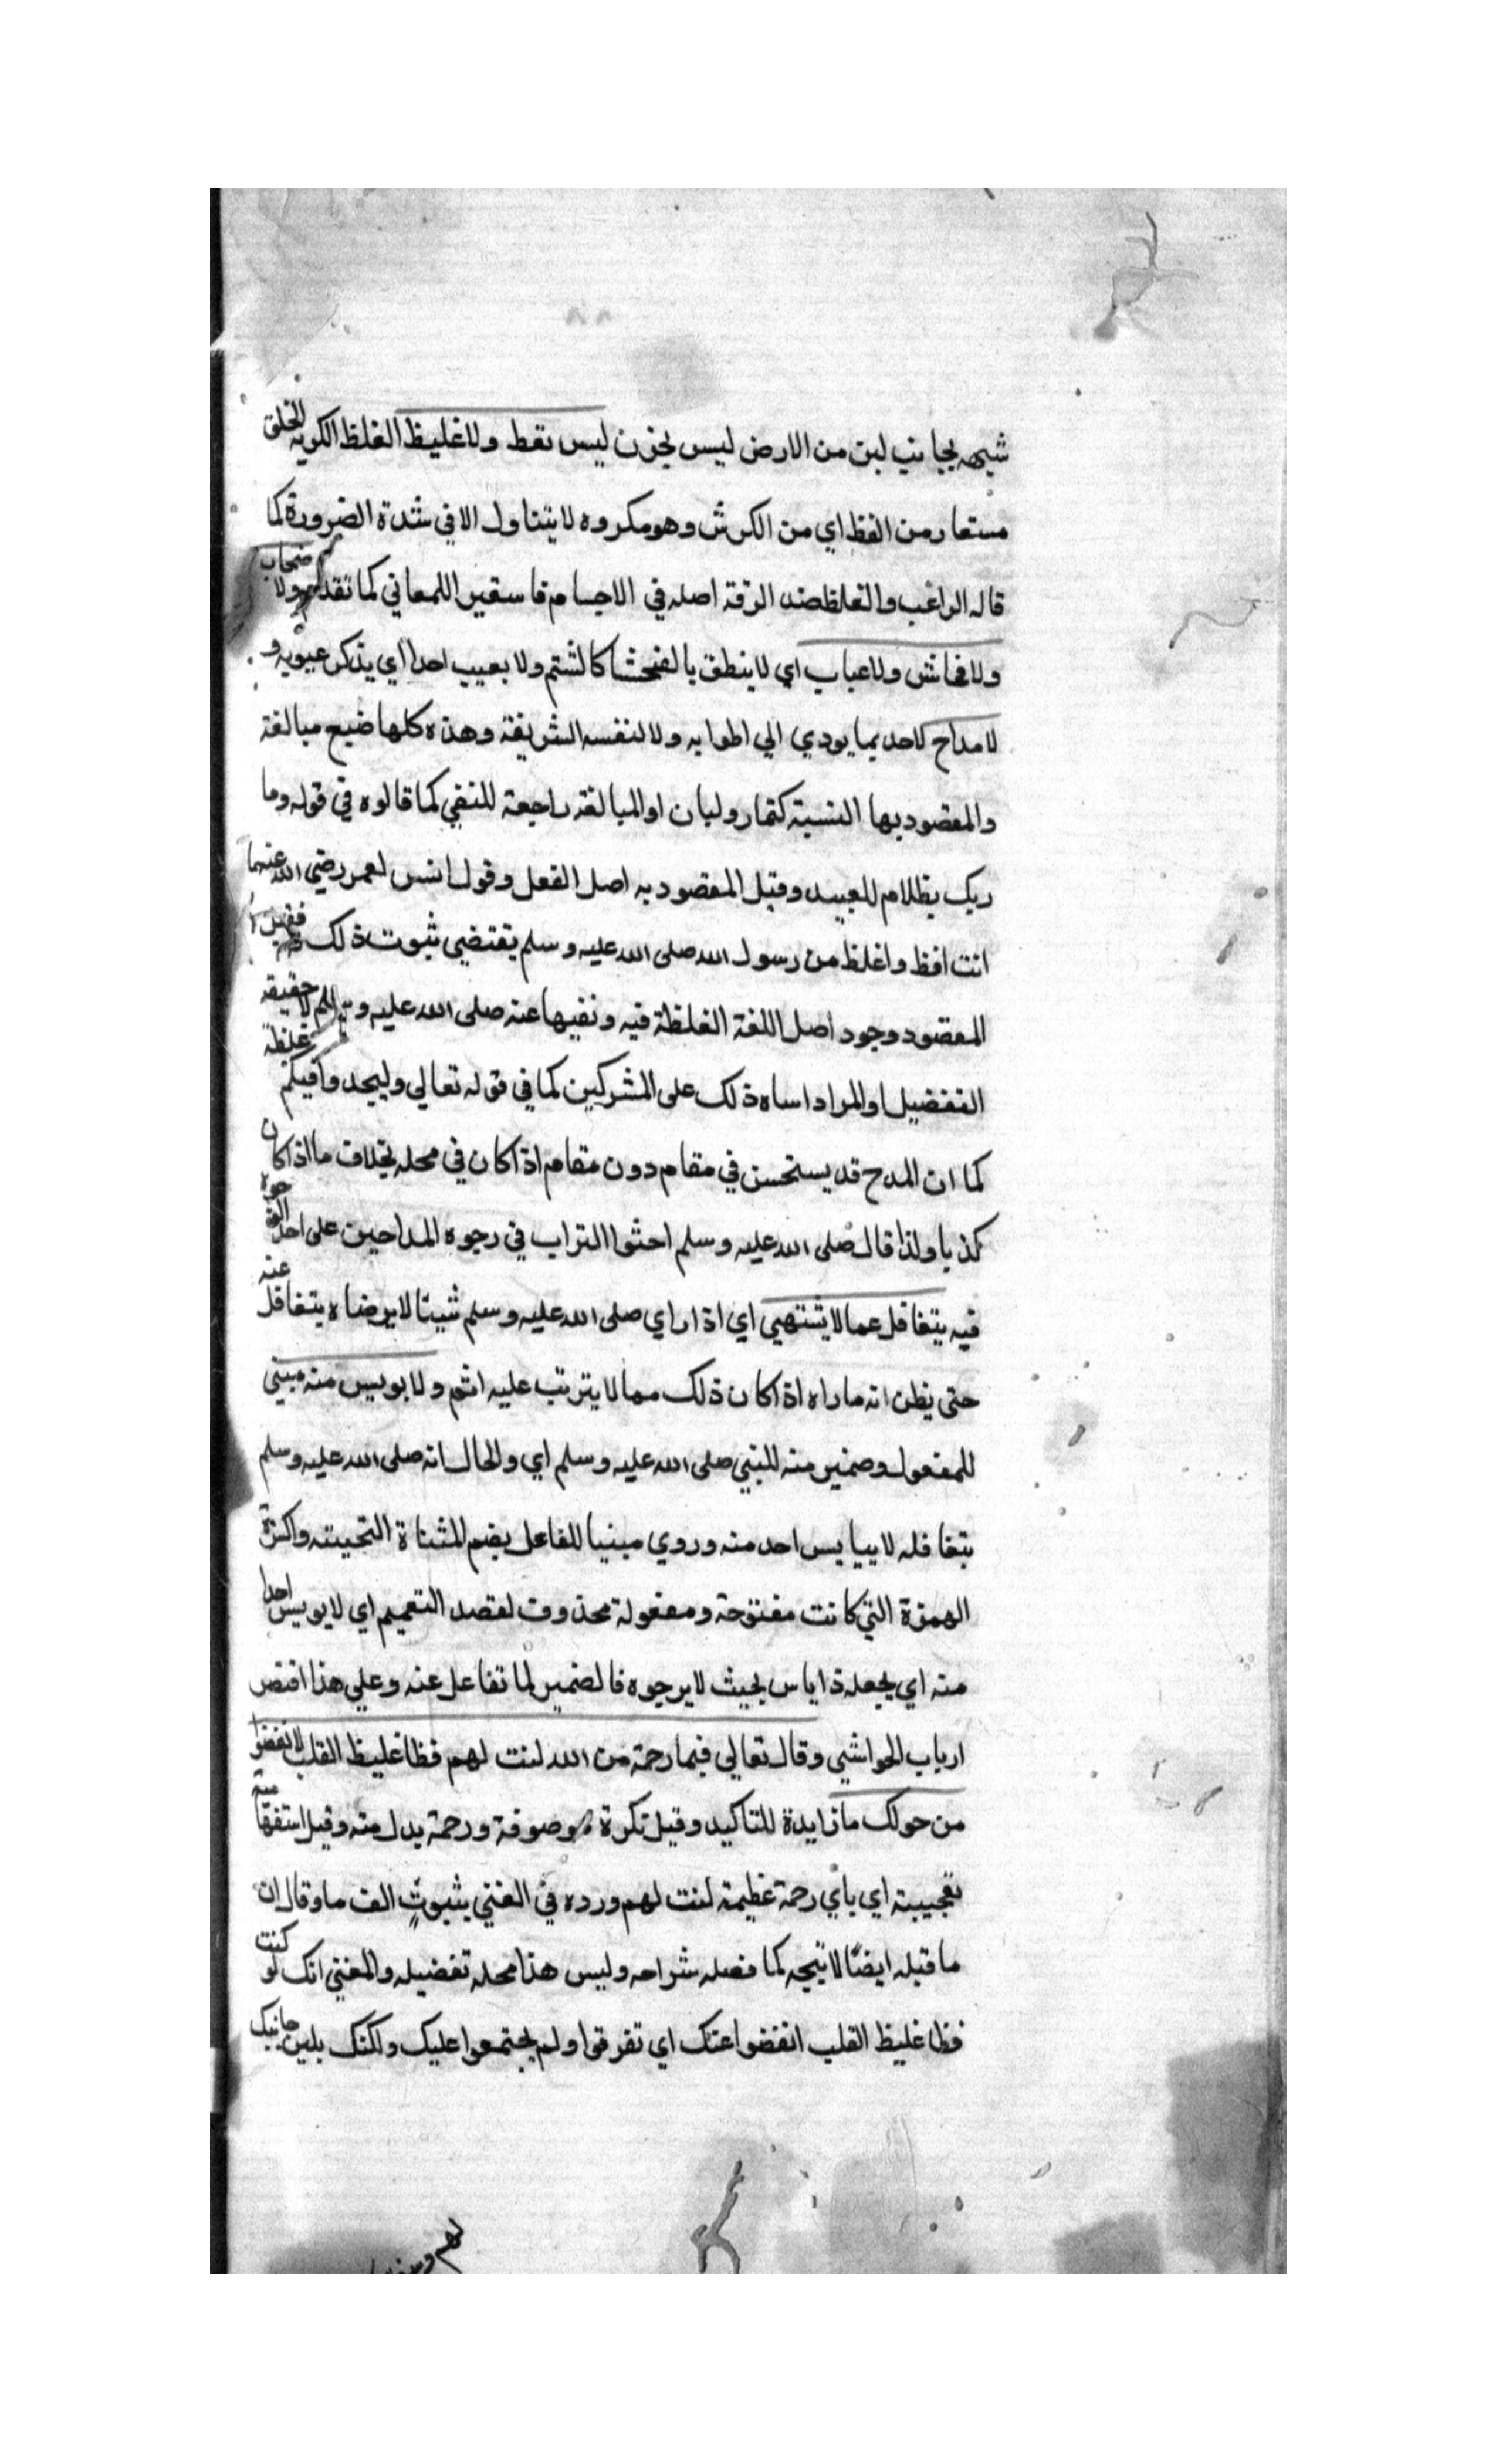 شبهه بجانب لين من الارض ليس بحزن ليس بفظ ولا غليظ الفظ الكريه الخلق
مستعار من الفظ اي من الكرش وهو مكروه لا يتناول الا في شدة الضرورة كما
قاله الراغب والغلظ ضد الرقة اصله في الاجسام فاستعير للمعاني كما تقدم ولا صخاب
ولا فحاش ولا عياب اي لا ينطق بالفحشا كالشتم ولا بعيب احد اي يذكر عيوبه و
لا مداح لاحد بما يودي الي اطرا به ولا لنفسه الشريفة وهذه كلها صيغ مبالغة
والمقصود بها النسبة كتمار ولبان او المبالغة راجعة للنفي كما قالوه في قوله وما
ربك بظلام للعبيد وقيل المقصود به اصل الفعل وقول انس لعمر رضي الله عنهما
انت افظ واغلظ من رسول الله صلى الله عليه وسلم يقتضي ثبوت ذلك
المقصود وجود اصل اللغة الغلظة فيه ونفيها عنه صلى الله عليه و لا حقيقة
التفضيل او المراد اساه ذلك على المشركين كما في قوله تعالى وليجدوا فيكم غلظة
كما ان المدح قد يستحسن في مقام دون مقام اذا كان في محله بخلاف ما اذا كان
كذبا ولذا قال صلى الله عليه وسلم احثوا التراب في وجوه المداحين على احد الوجوه
فيه يتغافل عما لا يشتهي اي اذا راي صلى الله عليه وسلم شيئا لا يرضاه يتغافل عنه
حتى يظن انه ما راه اذا كان ذلك مما لا يترتب عليه اثم ولا يويس منه مبني
للمفعول وضمير منه للنبي صلى الله عليه وسلم اي والحال انه صلى الله عليه وسلم
بتغافله لا ييايس احد منه وروي مبنيا للفاعل بضم المثناة التحيته وكسرة
الهمزة التي كانت مفتوحة ومفعوله محذوف لقصد التعميم اي لا يويس احدا
منه اي يجعله ذا ياس بحيث لا يرجوه فالضمير لما تغافل عنه وعلي هذا اقتصر
ارباب الحواشي وقال تعالي فبما رحمة من الله لنت لهم فظا غليظ القلب لانفضوا
من حولك ما زايدة للتاكيد وقيل نكرة موصوفة ورحمة بدل منه وقيل استفهامية
تعجيبة اي باي رحمة عظيمة لنت لهم ورده في المغني بثبوت الف ما وقال ان
ما قبله ايضا لا يتجه كما فصله شراحه وليس هذا محله تفضيله والمغني انك لو كنت
فظا غليظ القلب انفضوا عنك اي تفرقوا ولم يجتمعوا عليك ولكنك بلين جانبك
لهم و